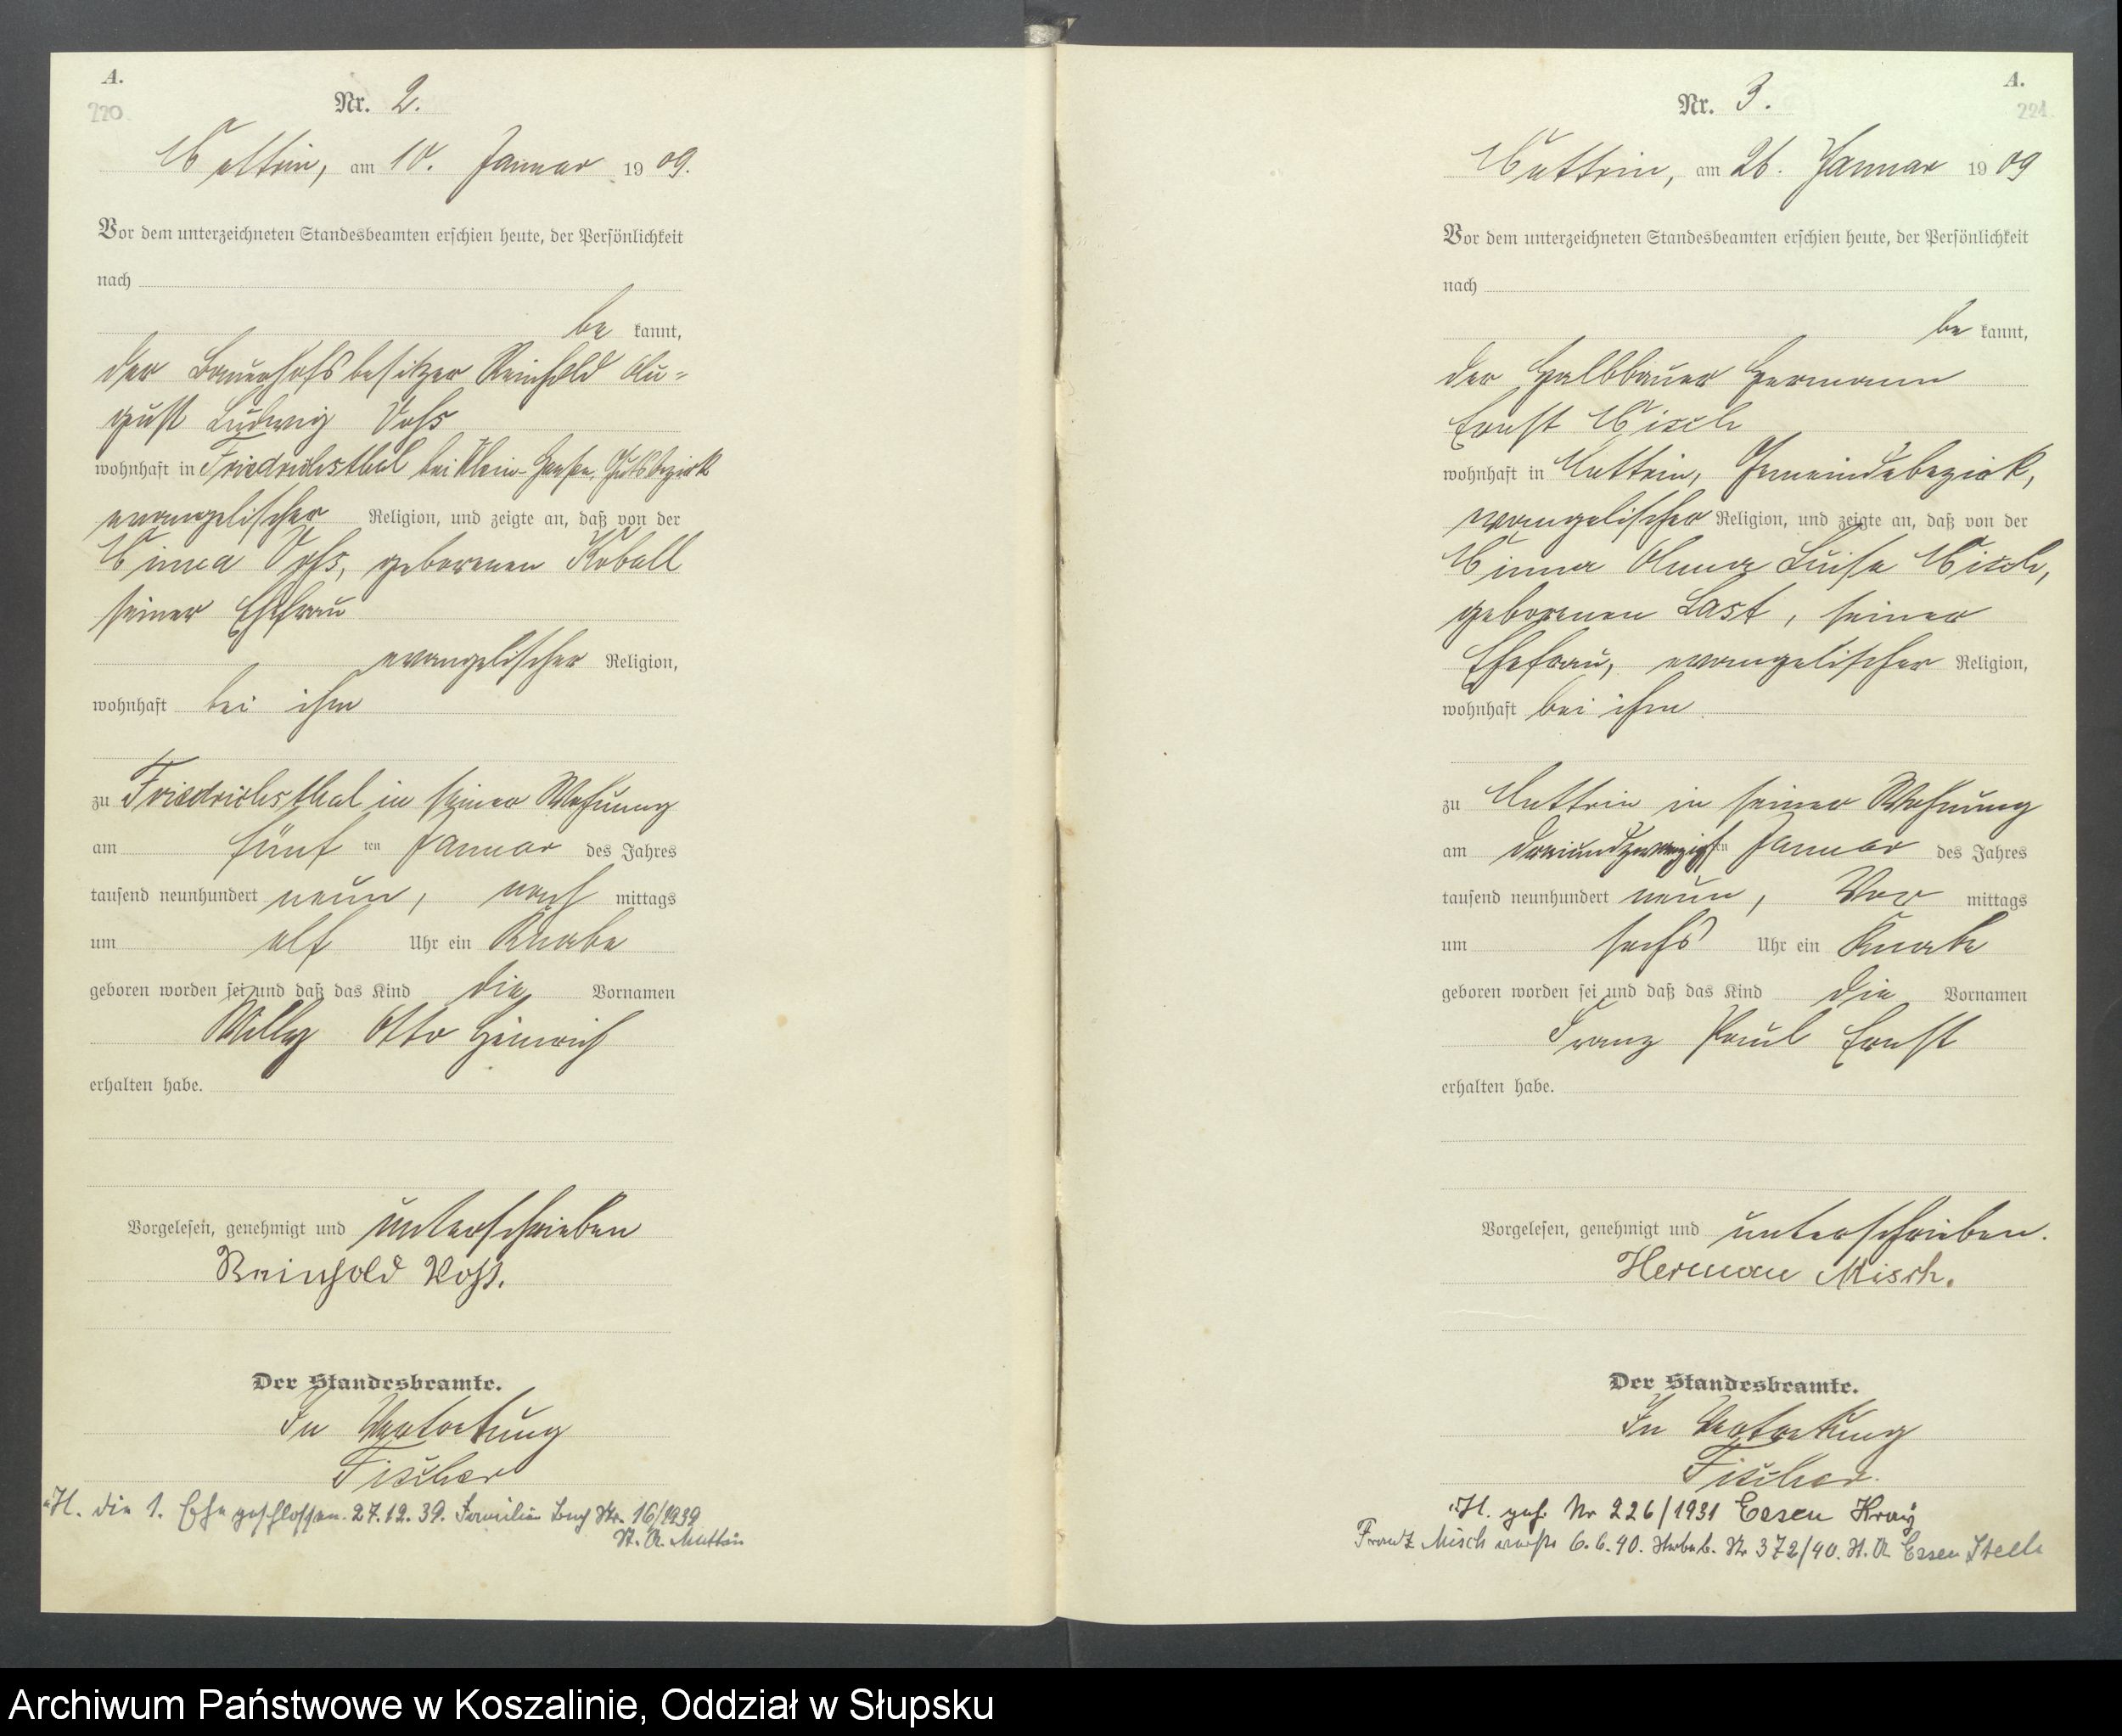 A.
220
Nr. 2.
Muttrin, am 10. Januar 1909.
Vor dem unterzeichneten Standesbeamten erschien heute, der Persönlichkeit
nach
be kannt,
der Bauerhofsbesitzer Reinhold Au-
gust Ludwig Voß
wohnhaft in Friedrichsthal bei Klein-Gansen, Gutsbezirk
evangelischer Religion, und zeigte an, daß von der
Minna Voß, geborenen Koball
seiner Ehefrau
evangelischer Religion,
wohnhaft bei ihm
zu Friedrichsthal in seiner Wohnung
am fünf ten Januar des Jahres
tausend neunhundert neun, nach mittags
um elf Uhr ein Knabe
geboren worden sei und daß das Kind die Vornamen
Willy Otto Heinrich
erhalten habe.
Vorgelesen, genehmigt und unterschrieben
Reinhold Voß.
Der Standesbeamte.
In Vertretung
Fischer
H. die 1. Ehe geschlossen 27.12.39. Familien Buch Nr. 16/1939
St. A. Muttrin
A.
221
Nr. 3.
Muttrin, am 26. Januar 1909
Vor dem unterzeichneten Standesbeamten erschien heute, der Persönlichkeit
nach
be kannt,
der Halbbauer Hermann
Ernst Misch
wohnhaft in Muttrin, Gemeindebezirk,
evangelischer Religion, und zeigte an, daß von der
Minna Anna Luise Misch,
geborenen Last, seiner
Ehefrau, evangelischer Religion,
wohnhaft bei ihm
zu Muttrin in seiner Wohnung
am dreiundzwanzigsten Januar des Jahres
tausend neunhundert neun, Vor mittags
um sechs Uhr ein Knabe
geboren worden sei und daß das Kind die Vornamen
Franz Paul Ernst
erhalten habe.
Vorgelesen, genehmigt und unterschrieben.
Herman Misch.
Der Standesbeamte.
In Vertretung
Fischer.
H. geh. Nr 226/1931 Essen Kray
Franz Misch 6.6.40. Nr 372/40. St. A Essen Steele
Archiwum Państwowe w Koszalinie, Oddział w Słupsku